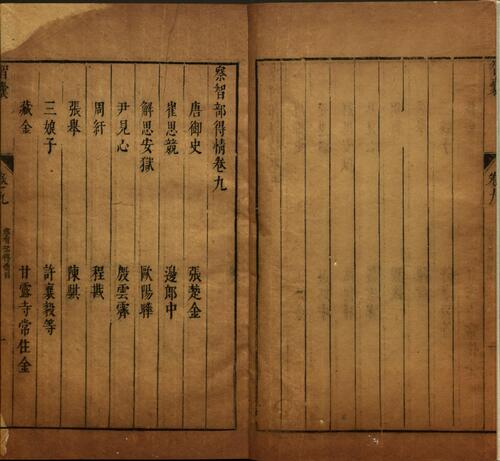 察智部得情卷九
唐御史
張楚金
崔思競
邊郎中
解思安獄
歐陽曄
尹見心
殷雲霽
周紆
程戡
張舉
陳騏
三娘子
許襄毅等
藏金
甘露寺常住金
卷九
一
卷九